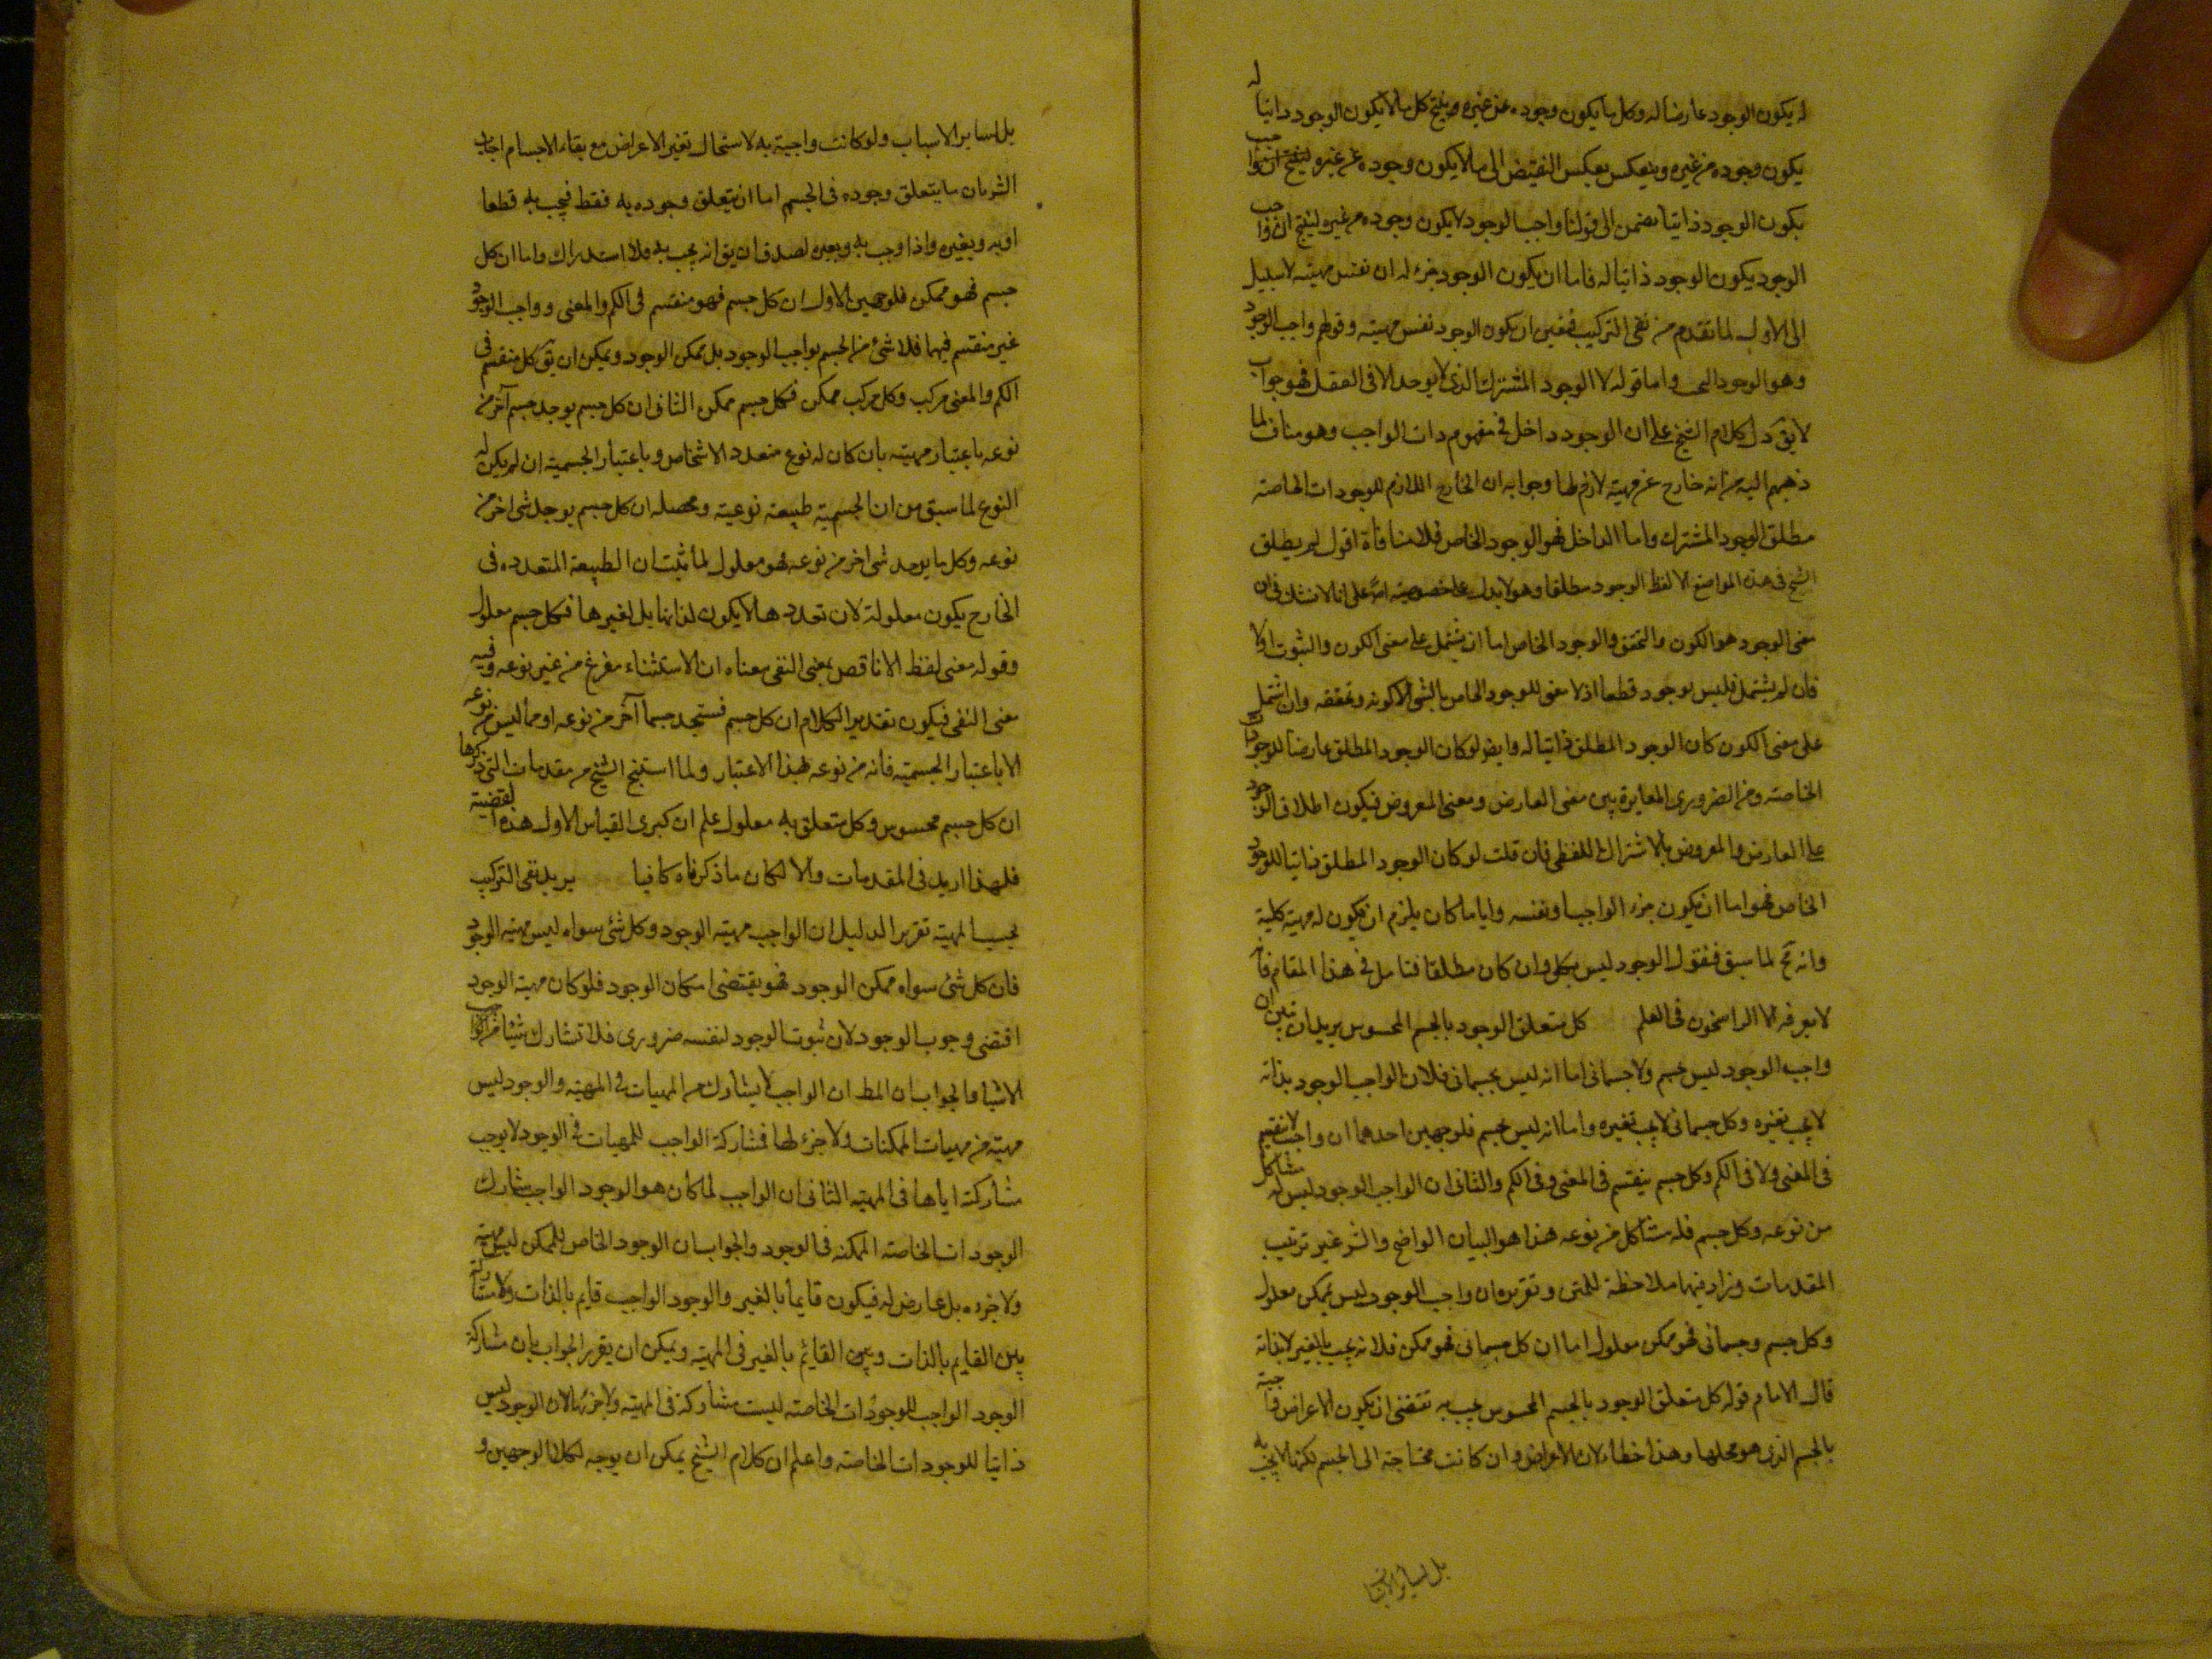 له يكون الوجود عارضا له وكل ما يكون وجوده عن غيره وينتج كل ما لا يكون الوجود ذاتيا له
يكون وجوده من غيره وينعكس بعكس النقيض الى ما لا يكون وجوده عن غيره
يكون الوجود ذاتيا نضمن الى قولنا واجب الوجود لا يكون وجوده من غيره لينتج ان واجب
الوجود يكون الوجود ذاتيا له فاما ان يكون الوجود جزء له ان نفس مهيته لا سبيل
الى الاول لما تقدم من نفى التركيب فتعين ان يكون الوجود نفس مهيته وقولهم واجب الوجود
وهو الوجود البحت واما قوله لا الوجود المشترك الذى لا يوجد الا فى العقل فهو جواب
لا يق دل كلام الشيخ على ان الوجود داخل فى مفهوم ذات الواجب وهو مناف لما
ذهبهم اليه من انه خارج عن مهيته لازم لها وجوابه ان الخارج اللازم للوجودات الخاصة
مطلق الوجود المشترك واما الداخل فهو الوجود الخاص فلا منافاة اقول لم يطلق
الشيخ فى هذه المواضع الا لفظ الوجود مطلقا وهو لا يدل على خصوصيته على انا لا نشك فى ان
معنى الوجود هو الكون والتحقق والوجود الخاص اما ان يشتمل على معنى الكون والثبوت او لا
فان لم يشتمل فليس بوجود قطعا اذ لا معنى للوجود الخاص بالشئ الا كونه وتحققه وان اشتمل
على معنى الكون كان الوجود المطلق ذاتيا له وايضو لو كان الوجود المطلق عارضا للوجودات
الخاصة ومن الضرورى المغايرة بين معنى العارض ومعنى المعروض فيكون اطلاق الوجود
على العارض والمعروض بالاشتراك اللفظى فان قلت لو كان الوجود المطلق ذاتيا للوجود
الخاص فهو اما ان يكون جزء الواجب او نفسه واياما كان يلزم ان يكون له مهية كلية
وانه مح لما سبق فنقول الوجود ليس بكلى وان كان مطلقا فتامل فى هذا المقام فانه
لا يعرفه الا الراسخون فى العلم كل متعلق الوجود بالجسم المحسوس يريد ان يبين ان
واجب الوجود ليس بجسم ولا جسمانى اما انه ليس بجسمانى فلان الواجب الوجود بذاته
لا يجب بغيره وكل جسمانى لا يجب بغيره واما انه ليس بجسم فلوجهين احدهما ان واجب لا ينقسم
فى المعنى ولا فى الكم وكل جسم ينقسم فى المعنى وفى الكم والثانى ان الواجب الوجود ليس له مشاكل
من نوعه وكل جسم فله مشاكل من نوعه هذا هو البيان الواضح والشو غير ترتيب
المقدمات وزاد فيها ملاحظة للمتن وتقريره ان واجب الوجود ليس بممكن معلول
وكل جسم وجسمانى فهو ممكن معلول اما ان كل جسمانى فهو ممكن فلانه يجب بالغير لا بذاته
قال الامام قوله كل متعلق الوجود بالجسم المحسوس يجب به تقتضى ان يكون الاعراض واجبة
بالجسم الذى هو محلها وهذا خطاء لان الاعراض وان كانت محتاجة الى الجسم لكنها لا يجب به
بل لساير الاسباب
بل لساير الاسباب ولو كانت واجبة به لاستحال تغير الاعراض مع بقاء الاجسام اجاب
الش بان ما يتعلق وجوده فى الجسم اما ان يتعلق وجوده به فقط فيجب به قطعا
او به وبغيره واذا وجب به وبغيره لصدق ان يق انه يجب به فلا استدراك واما ان كل
جسم فهو ممكن فلوجهين الاول ان كل جسم فهو منقسم فى الكم والمعنى وواجب الوجود
غير منقسم فيهما فلا شئ من الجسم بواجب الوجود بل ممكن الوجود ويمكن ان يق كل منقسم فى
الكم والمعنى مركب وكل مركب ممكن فكل جسم ممكن الثانى ان كل جسم يوجد جسم آخر من
نوعه باعتبار مهيته بان كان له نوع متعدد الاشخاص وباعتبار الجسمية ان لم يكن له
النوع لما سبق من ان الجسمية طبيعة نوعية ومحصله ان كل جسم يوجد شئ اخر من
نوعه وكل ما يوجد شئ اخر من نوعه فهو معلول لما ثبت ان الطبيعة المتعددة فى
الخارج يكون معلولة لان تعددها لا يكون لذاتها بل لغيرها فكل جسم معلول
وقوله معنى لفظ الا ناقص بمعنى النفى معناه ان الاستثناء مفرغ من غير نوعه وفيه
معنى النفى فيكون تقدير الكلام ان كل جسم فستجد جسما آخر من نوعه او مما ليس من نوعه
الا باعتبار الجسمية فانه من نوعه بهذا الاعتبار ولما استنتج الشيخ من مقدمات التى ذكرها
ان كل جسم محسوس وكل متعلق به معلول علم ان كبرى القياس الاول هذه القضية
فلهذا اريد فى المقدمات والا لكان ما ذكرناه كافيا يريد نفى التركيب
بحسب المهية تقرير الدليل ان الواجب مهيته الوجود وكل شئ سواه ليس مهيته الوجود
فان كل شئ سواه ممكن الوجود فهو يقتضى امكان الوجود فلو كان مهيته الوجود
اقتضى وجوب الوجود لان ثبوت الوجود لنفسه ضرورى فلا تشارك شيئا
الاشياء والجواب ان المط ان الواجب لا يشارك من المهيات فى المهية والوجود ليس
مهية من مهيات الممكنات ولا جزء لها فمشاركة الواجب للمهيات فى الوجود لا يوجب
مشاركة اياها فى المهية الثانى ان الواجب لما كان هو الوجود الواجب يشارك
الوجودات الخاصة الممكنة فى الوجود والجواب ان الوجود الخاص للممكن ليس مهيته
ولا جزءه بل عارض له فيكون قايما بالغير والوجود الواجب قايم بالذات ولا مشاركة
بين القايم بالذات وبين القائم بالغير فى المهية ويمكن ان يقرر الجواب بان مشاركة
الوجود الواجب للوجودات الخاصة ليست مشاركة فى المهية ولا جزئها لان الوجود ليس
ذاتيا للوجودات الخاصة واعلم ان كلام الشيخ يمكن ان يوجه لكلا الوجهين و